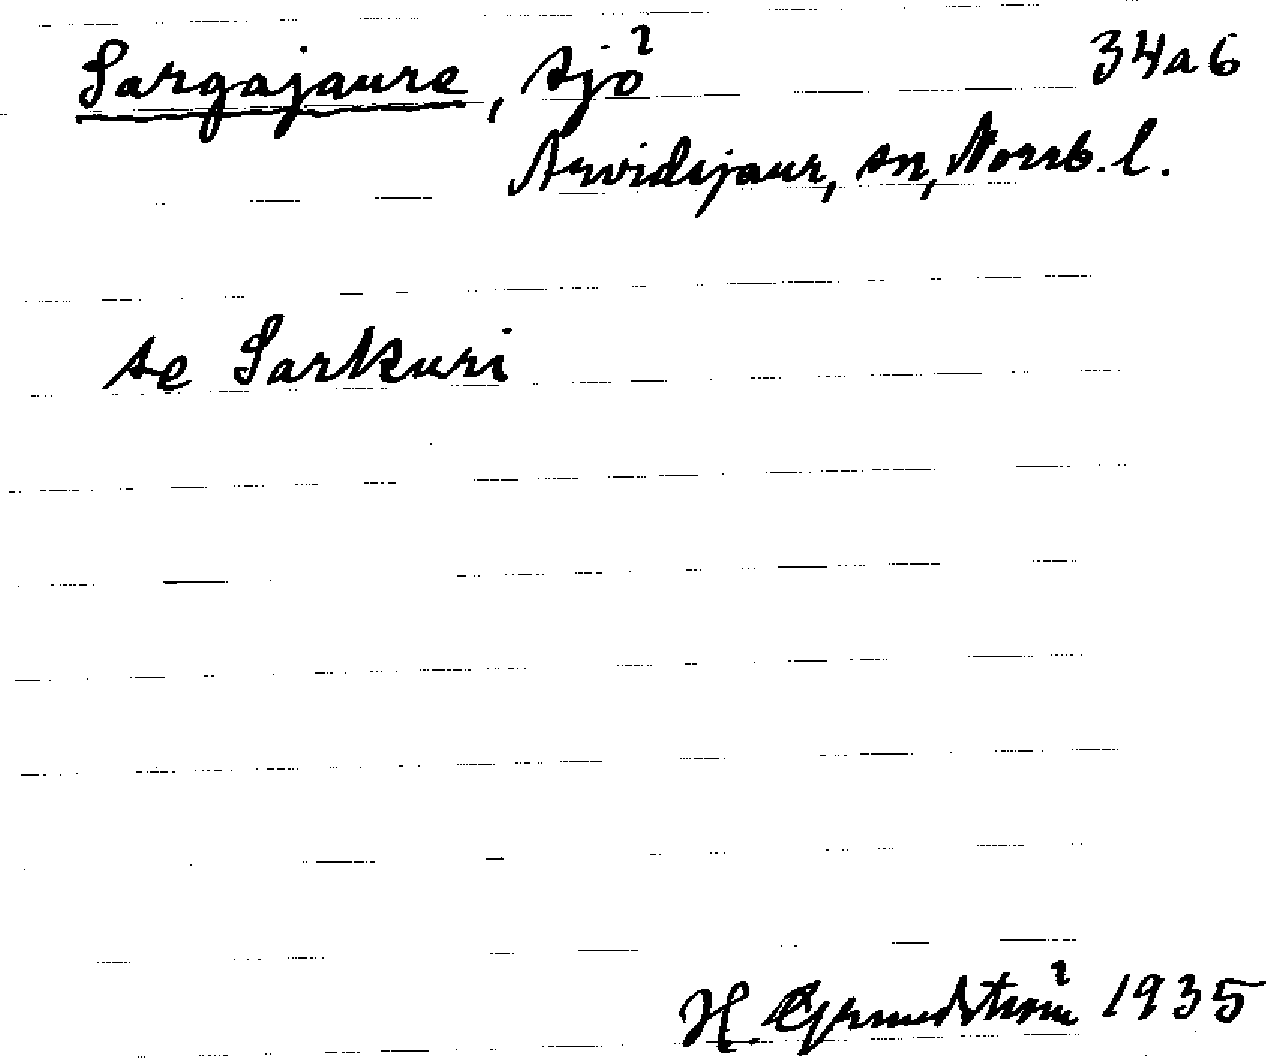 Sargajaure, sjö 34a6
Arvidsjaur, sn, Norrb. l.
se Sarkuri
H. Grundström 1935